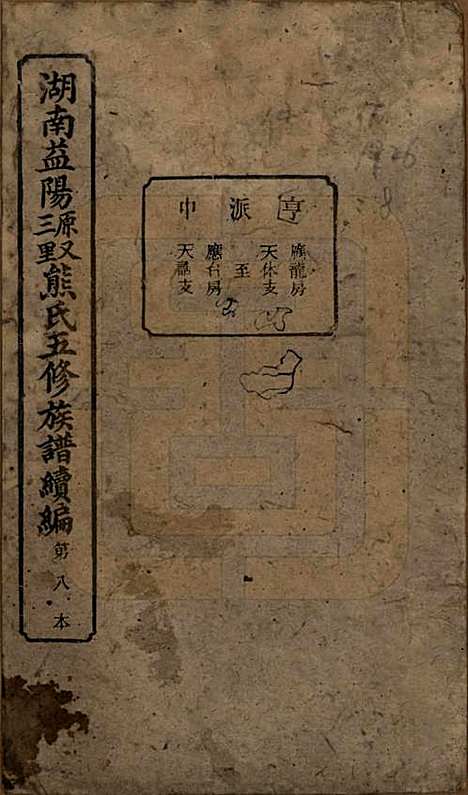 湖南益陽三里源又熊氏五修族譜續編 第八本
亨派中
應龍房
天休支
至
應台房
天支
1926
8